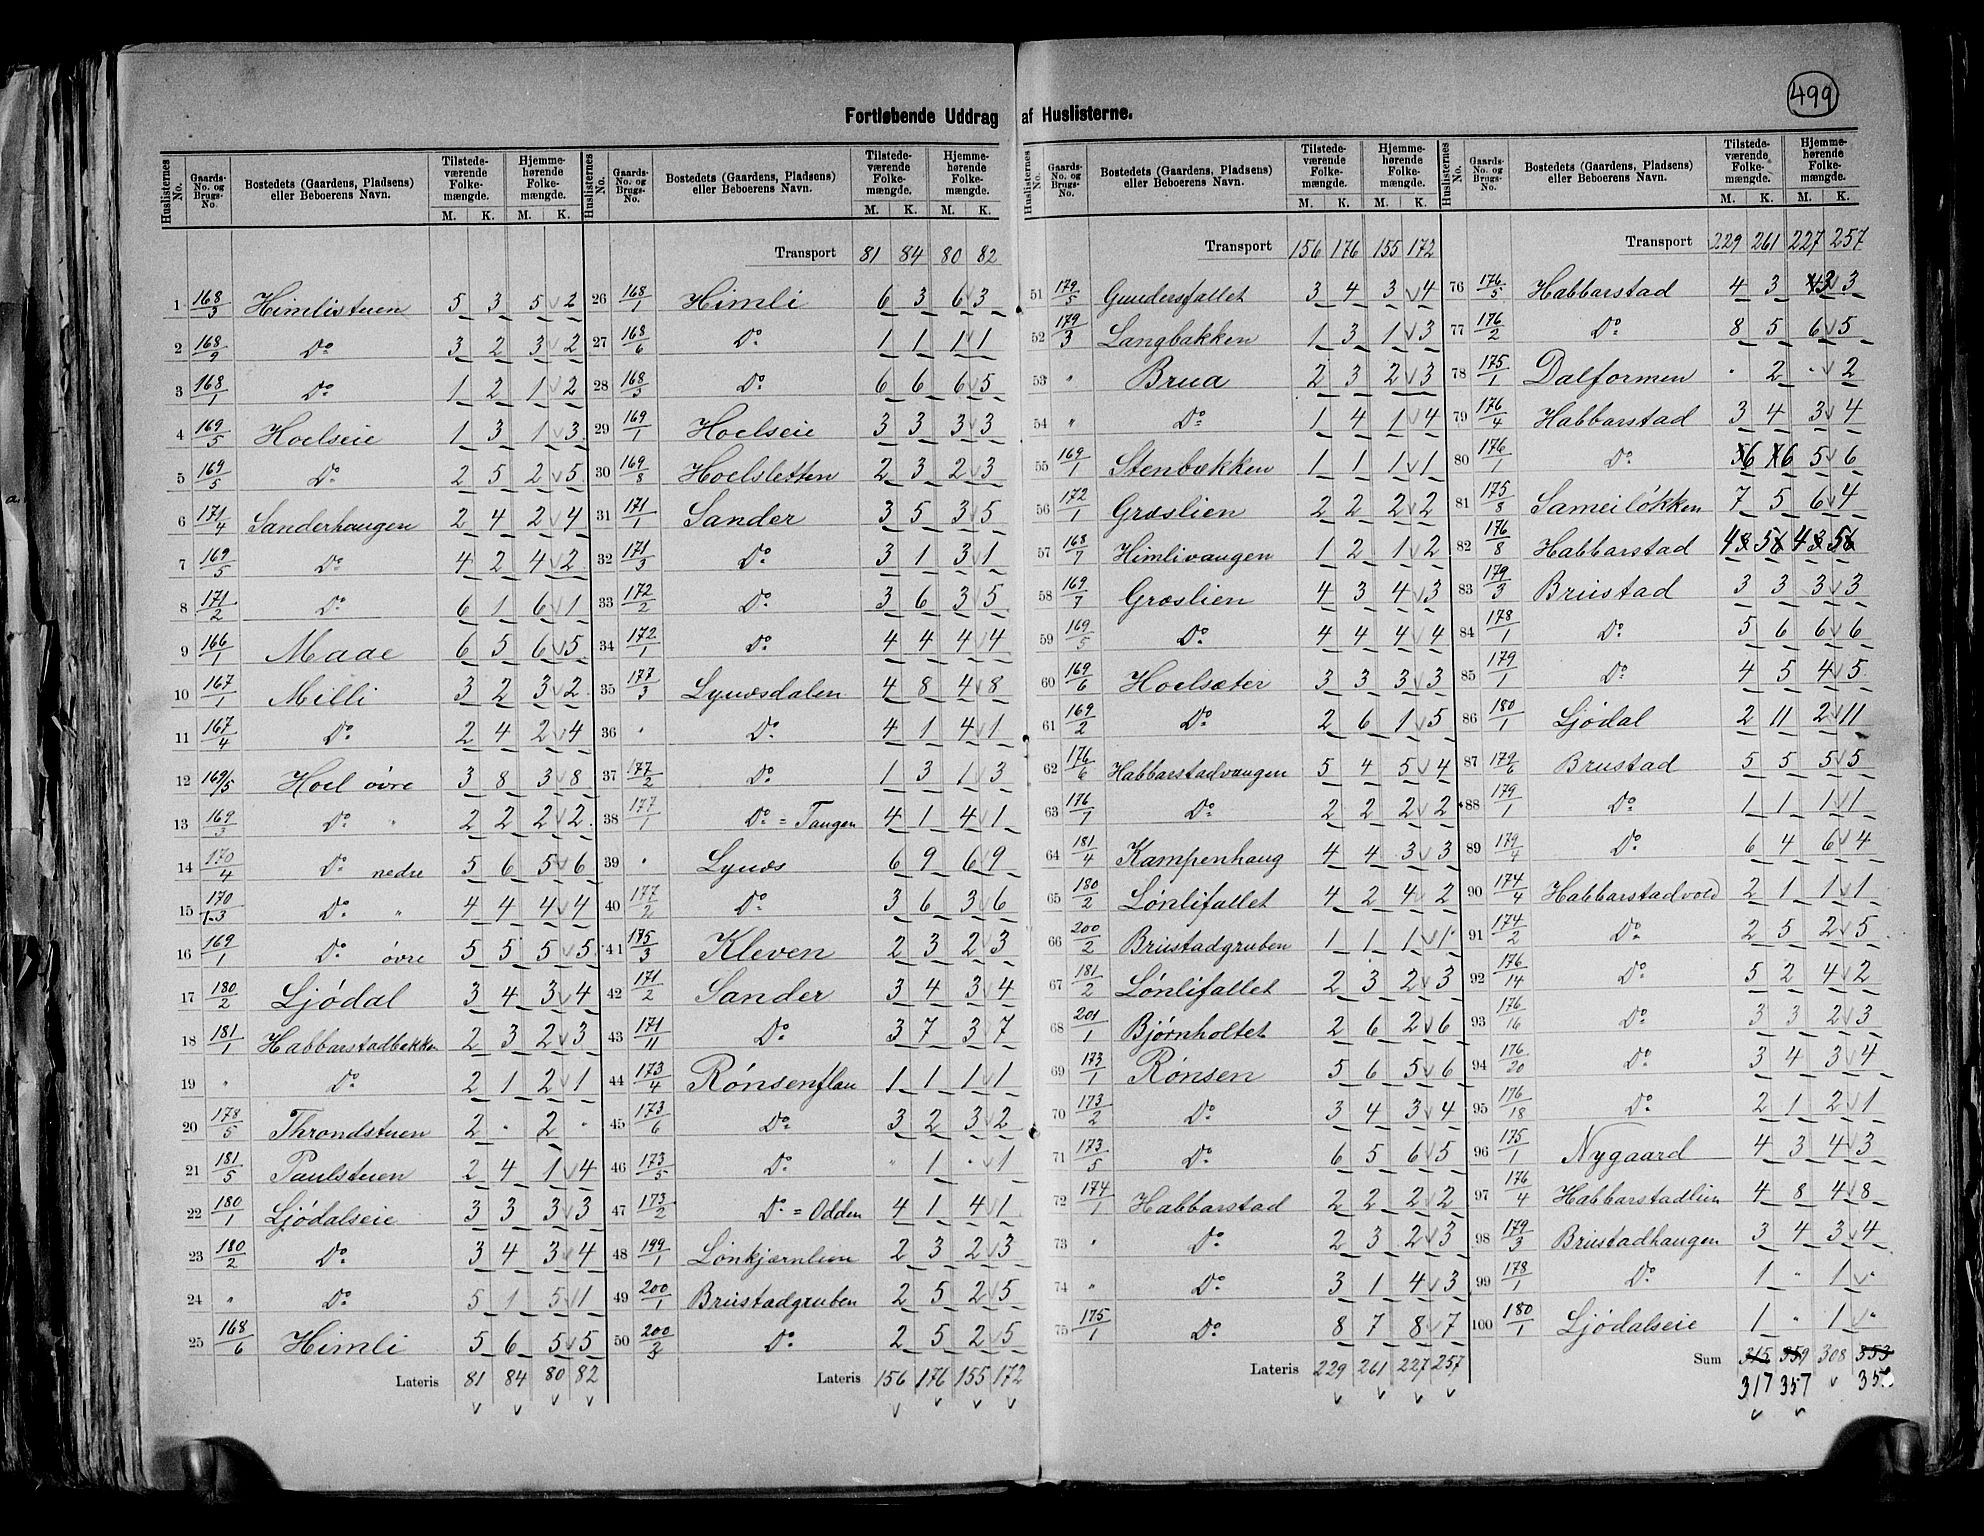 499
Fortløbende Uddrag af Huslisterne.
Huslisternes No. | Gaards-No. og Brugs-No. | Bostedets (Gaardens, Pladsens) eller Beboerens Navn. | Tilstedeværende Folkemængde. M. K. | Hjemmehørende Folkemængde. M. K.
1 168/3 Himlistuen 5 3 5 2
2 168/9 Do 3 2 3 2
3 168/1 Do 1 2 1 2
4 169/5 Hoelseie 1 3 1 3
5 169/5 Do 2 5 2 5
6 171/4 Sanderhaugen 2 4 2 4
7 169/5 Do 4 2 4 2
8 171/2 Do 6 1 6 1
9 166/1 Maae 6 5 6 5
10 167/1 Milli 3 2 3 2
11 167/4 Do 2 4 2 4
12 169/5 Hoel øvre 3 8 3 8
13 169/3 Do " 2 2 2 2
14 170/4 Do nedre 5 6 5 6
15 170/1-3 Do " 4 4 4 4
16 169/1 Do øvre 5 5 5 5
17 180/2 Ljødal 3 4 3 4
18 181/1 Habbarstadbakken 2 3 2 3
19 " Do 2 1 2 1
20 178/5 Throndstuen 2 " 2 "
21 181/5 Paulstuen 2 4 1 4
22 180/1 Ljødalseie 3 3 3 3
23 180/2 Do 3 4 3 4
24 " Do 5 1 5 1
25 168/6 Himli 5 6 5 5
Lateris 81 84 80 82
Huslisternes No. | Gaards-No. og Brugs-No. | Bostedets (Gaardens, Pladsens) eller Beboerens Navn. | Tilstedeværende Folkemængde. M. K. | Hjemmehørende Folkemængde. M. K.
Transport 81 84 80 82
26 168/1 Himli 6 3 6 3
27 168/6 Do 1 1 1 1
28 168/3 Do 6 6 6 5
29 169/1 Hoelseie 3 3 3 3
30 169/8 Hoelsletten 2 3 2 3
31 171/1 Sander 3 5 3 5
32 171/3 Do 3 1 3 1
33 172/2 Do 3 6 3 5
34 172/1 Do 4 4 4 4
35 177/3 Lynæsdalen 4 8 4 8
36 " Do 4 1 4 1
37 177/2 Do 1 3 1 3
38 177/1 Do = Tangen 4 1 4 1
39 " Lynæs 6 9 6 9
40 177/2 Do 3 6 3 6
41 175/3 Kleven 2 3 2 3
42 171/2 Sander 3 4 3 4
43 171/11 Do 3 7 3 7
44 173/4 Rønsenflau 1 1 1 1
45 173/6 Do 3 2 3 2
46 173/5 Do " 1 " 1
47 173/2 Do = Odden 4 1 4 1
48 199/1 Lønkjærnlien 2 3 2 3
49 200/1 Brustadgruben 2 5 2 5
50 200/3 Do 2 5 2 5
Lateris 156 176 155 172
Huslisternes No. | Gaards-No. og Brugs-No. | Bostedets (Gaardens, Pladsens) eller Beboerens Navn. | Tilstedeværende Folkemængde. M. K. | Hjemmehørende Folkemængde. M. K.
Transport 156 176 155 172
51 179/5 Gundersfallet 3 4 3 4
52 179/3 Langbakken 1 3 1 3
53 " Brua 2 3 2 3
54 " Do 1 4 1 4
55 169/1 Stenbækken 1 1 1 1
56 172/1 Græslien 2 2 2 2
57 168/7 Himlivangen 1 2 1 2
58 169/7 Græslien 4 3 4 3
59 169/5 Do 4 4 4 4
60 169/6 Hoelsæter 3 3 3 3
61 169/2 Do 2 6 1 5
62 176/6 Habbarstadvangen 5 4 5 4
63 176/1 Do 2 2 2 2
64 181/4 Kampenhaug 4 4 3 3
65 180/2 Lønlifallet 4 2 4 2
66 200/2 Brustadgruben 1 1 1 1
67 181/2 Lønlifallet 2 3 2 3
68 201/1 Bjørnholtet 2 6 2 6
69 173/1 Rønsen 5 6 5 6
70 173/2 Do 3 4 3 4
71 173/5 Do 6 5 6 5
72 174/1 Habbarstad 2 2 2 2
73 " Do 2 3 2 3
74 " Do 3 1 4 3
75 175/1 Do 8 7 8 7
Lateris 229 261 227 257
Huslisternes No. | Gaards-No. og Brugs-No. | Bostedets (Gaardens, Pladsens) eller Beboerens Navn. | Tilstedeværende Folkemængde. M. K. | Hjemmehørende Folkemængde. M. K.
Transport 229 261 227 257
76 176/5 Habbarstad 4 3 3 3
77 176/2 Do 8 5 6 5
78 175/1 Dalformen " 2 " 2
79 176/4 Habbarstad 3 4 3 4
80 176/1 Do 6 6 5 6
81 175/8 Sameiløkken 7 5 6 4
82 176/8 Habbarstad 4 5 4 5
83 179/3 Brustad 3 3 3 3
84 178/1 Do 5 6 6 6
85 179/1 Do 4 5 4 5
86 180/1 Ljødal 2 11 2 11
87 179/6 Brustad 5 5 5 5
88 179/1 Do 1 1 1 1
89 179/4 Do 6 4 6 4
90 174/4 Habbarstadvold 2 1 1 1
91 174/2 Do 2 5 2 5
92 176/14 Do 5 2 4 2
93 176/16 Do 3 3 2 3
94 176/20 Do 3 4 3 4
95 176/18 Do 2 1 2 1
96 175/1 Nygaard 4 3 4 3
97 176/4 Habbarstadlien 4 8 4 8
98 179/3 Brustadhaugen 3 4 3 4
99 178/1 Do 1 " 1 "
100 180/1 Ljødalseie 1 " 1 "
Sum 315 359 308 353
317 357